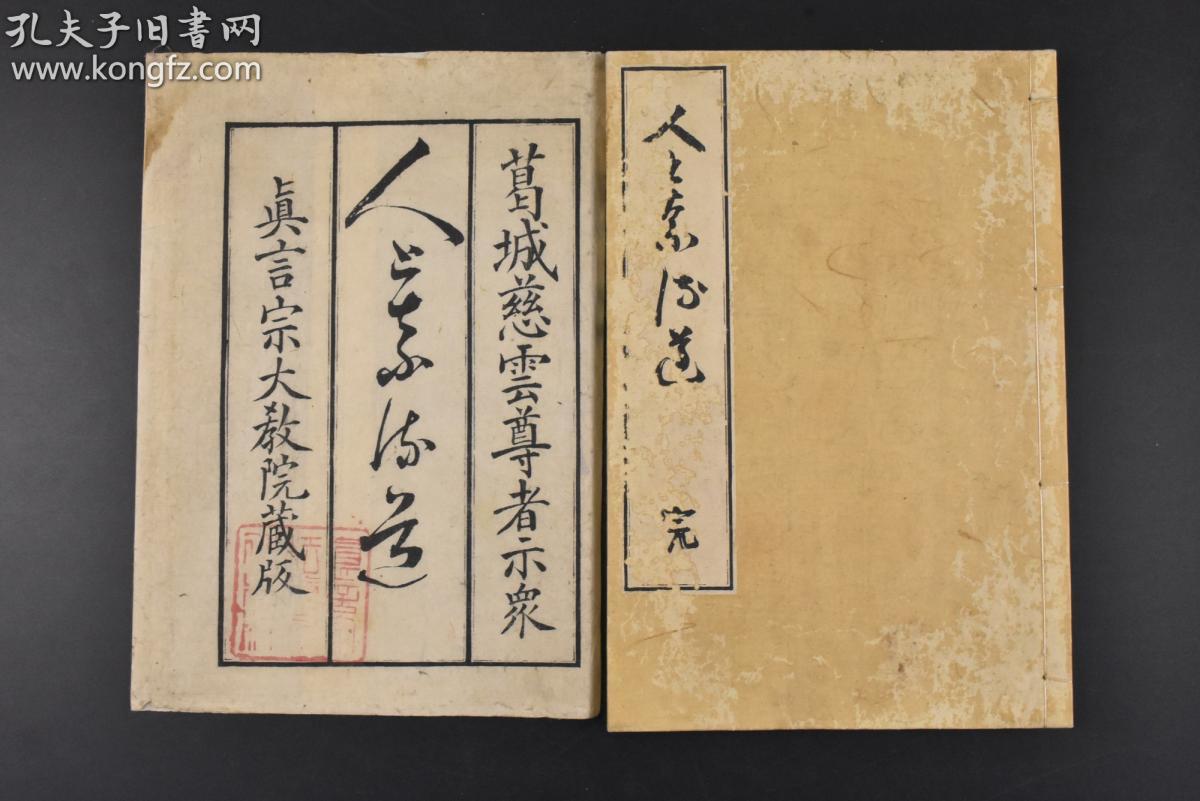 孔夫子旧书网
www.kongfz.com
人と奈る道
完
葛城慈雲尊者示衆
人と奈流道
眞言宗大教院蔵版